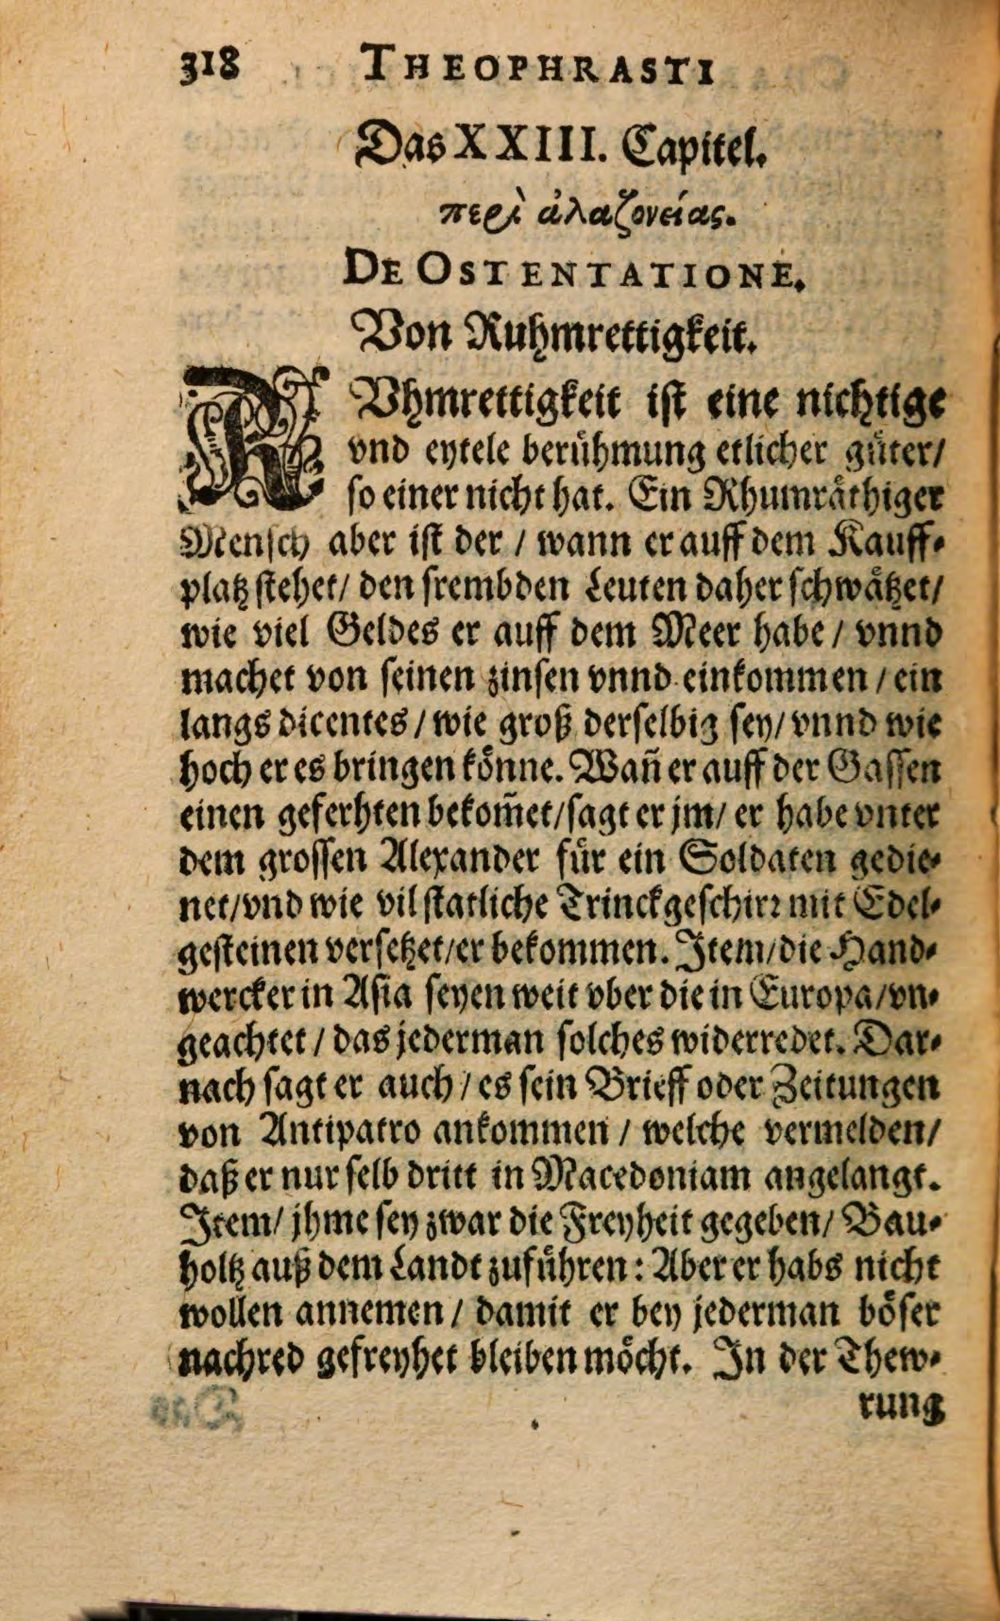 318 THEOPHRASTI
Das XXIII. Capitel.
περὶ ἀλαζονείας.
DE OSTENTATIONE.
Von Ruhmrettigkeit.
RVhmrettigkeit ist eine nichtige
vnd eytele berühmung etlicher güter/
so einer nicht hat. Ein Rhumräthiger
Mensch aber ist der / wann er auff dem Kauff-
platz stehet/ den frembden Leuten daher schwätzet/
wie viel Geldes er auff dem Meer habe / vnnd
machet von seinen zinsen vnnd einkommen / ein
langs dicentes / wie groß derselbig sey/ vnnd wie
hoch er es bringen könne. Wañ er auff der Gassen
einen geferhten bekom̃et/sagt er jm/ er habe vnter
dem grossen Alexander für ein Soldaten gedie-
net/vnd wie vil statliche Trinckgeschirr mit Edel-
gesteinen versetzet/er bekommen. Item/die Hand-
wercker in Asia seyen weit vber die in Europa/vn-
geachtet / das jederman solches widerredet. Dar-
nach sagt er auch / es sein Brieff oder Zeitungen
von Antipatro ankommen / welche vermelden/
daß er nur selb dritt in Macedoniam angelangt.
Item/ jhme sey zwar die Freyheit gegeben/ Bau-
holtz auß dem Landt zuführen: Aber er habs nicht
wollen annemen / damit er bey jederman böser
nachred gefreyhet bleiben möcht. In der Thew-
rung